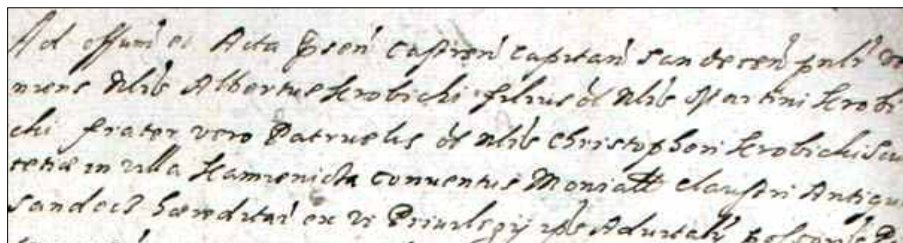 Ad offum et Acta psen castren capitan sandecen pnlr ve
niens Nlis Albertus Krobicki filius ol Nlis Martini Krobi
cki frater vero Patruelis ol Nlis Christophori Krobicki scu
tetiæ in villa Kamienicka conventus Monialu claustri Antiquæ
sandecz hæreditari ex vi Privilegij